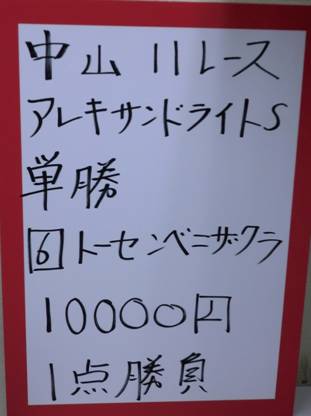 中山 11レース
アレキサンドライトS
単勝
6 トーセンベニザクラ
10000円
1点勝負